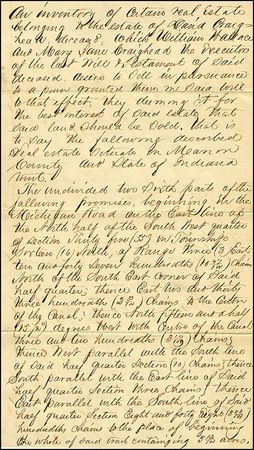 An inventory of Certain real Estate
belonging to the Estate of David Craig-
head deceased, which William Wallace
and Mary Jane Craighead the Executors
of the last Will & Testament of Said
deceased, desire to Sell in pursuance
to a power granted them in Said Will
to that effect, they deeming it for
the best interest of Said estate that
said land Should be Sold, that is
to Say the following described
real estate Situate in Marion
County and State of Indiana
to wit,
The undivided two Sixth parts of the
following premises, beginning in the
Michigan Road on the East line of
the North half of the South West quarter
of section Thirty five (35) in Township
Sixteen (16) North, of Range three (3) East
Ten and forty Seven hundredths (10 47/100) Chains
North of the South East Corner of Said
half quarter, thence East two and thirty
three hundredths (2 33/100) Chains to the Centre
of the Canal, thence North fifteen and a half
(15 1/2) degrees West with Centre of the Canal
three and ten hundredths (3 10/100) Chains,
thence West parallel with the South line
of Said half quarter Section (10) Chains, thence
South parallel with the East line of Said
half quarter Section three Chains, thence
East Parallel with the South line of Said
half quarter Section Eight and forty
hundredths Chains to the place of beginning
the whole of said tract containing acres.